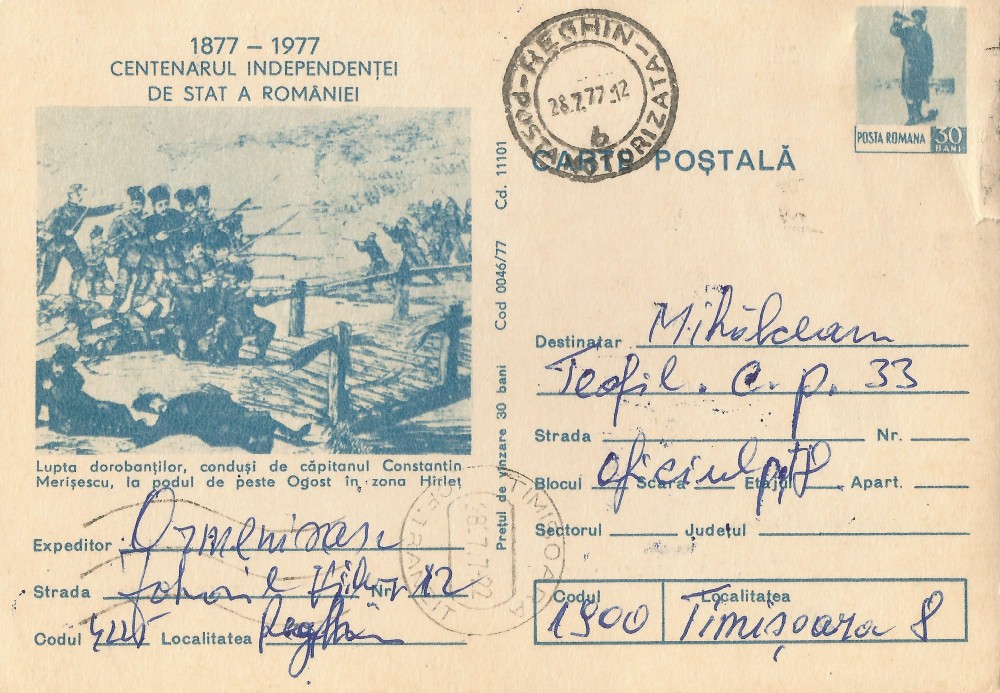 1877 – 1977
CENTENARUL INDEPENDENȚEI
DE STAT A ROMÂNIEI
Lupta dorobanților, conduși de căpitanul Constantin
Merișescu, la podul de peste Ogost în zona Hîrleț
Expeditor
Strada Nr. 12
Codul Localitatea Reghin
Prețul de vînzare 30 bani Cod 0046/77 Cd. 11101
REGHIN
28.7.77.12
POSTA AUTORIZATA
6
POSTA ROMANA 30 BANI
CARTE POȘTALĂ
Destinatar Mihălceanu
Teofil. C. p. 33
Strada Nr.
Blocul Scara Etajul Apart.
Oficiul
Sectorul Județul
Codul Localitatea
1900 Timișoara 8
TIMISOARA
OF.1 TRANZIT